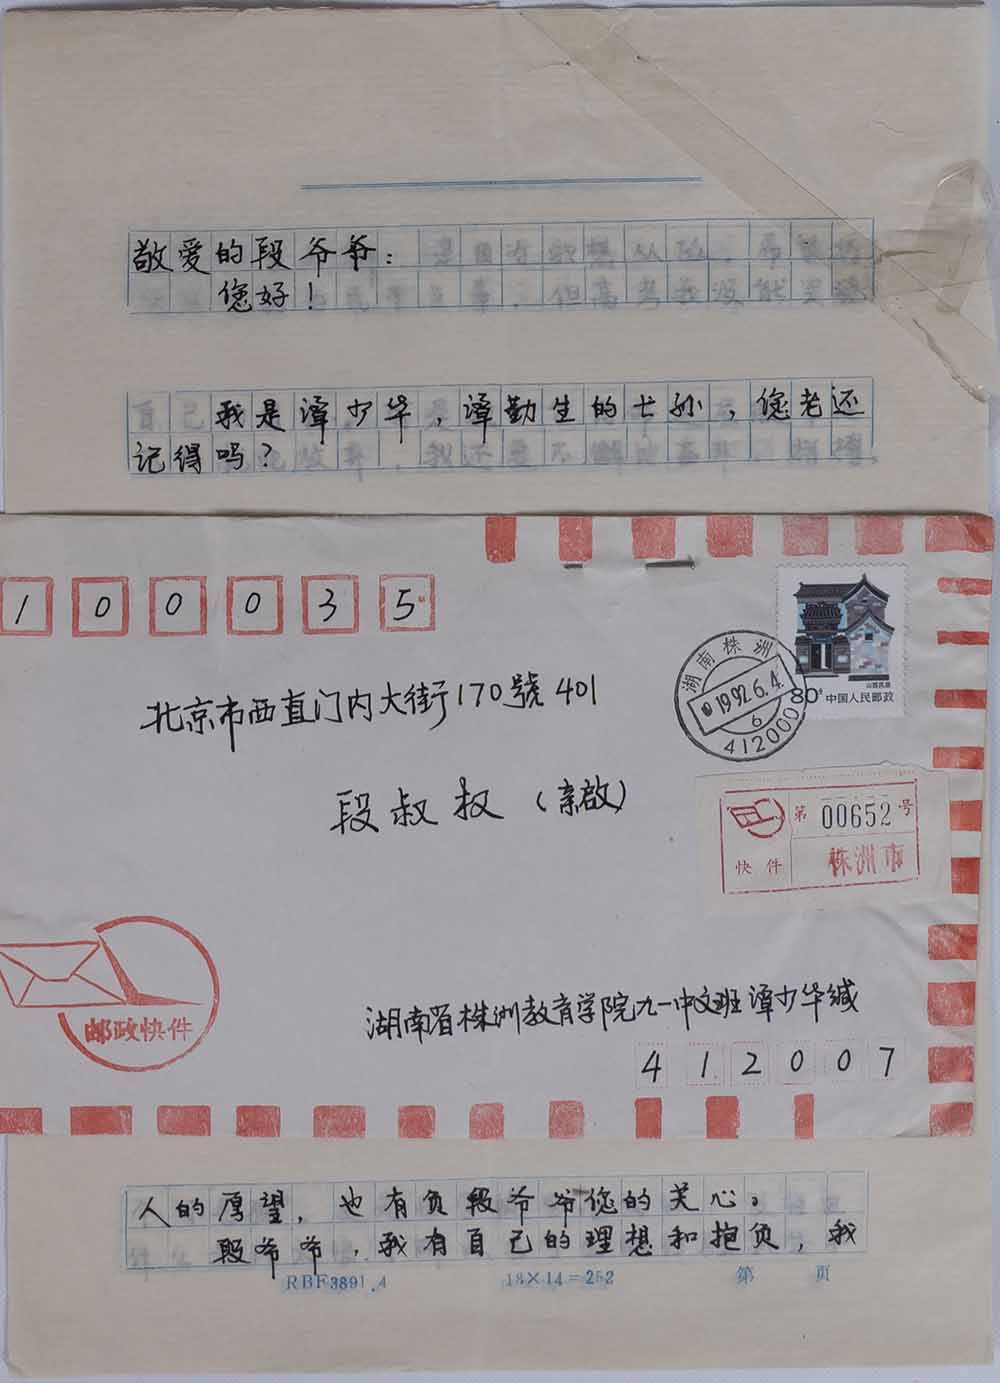 敬爱的段爷爷：
您好！
我是谭少华，谭勤生的七孙，您老还
记得吗？
100035
北京市西直门内大街170號401
段叔权（亲啟）
湖南株洲
1992.6.4
6
412000
80分 中国人民邮政
山西民居
第 00652 号
快件 株洲市
邮政快件
湖南省株洲教育学院九一中文班谭少华缄
412007
人的厚望，也有负段爷爷您的关心。
段爷爷，我有自己的理想和抱负，我
RBF3891.4 18×14=252 第 页